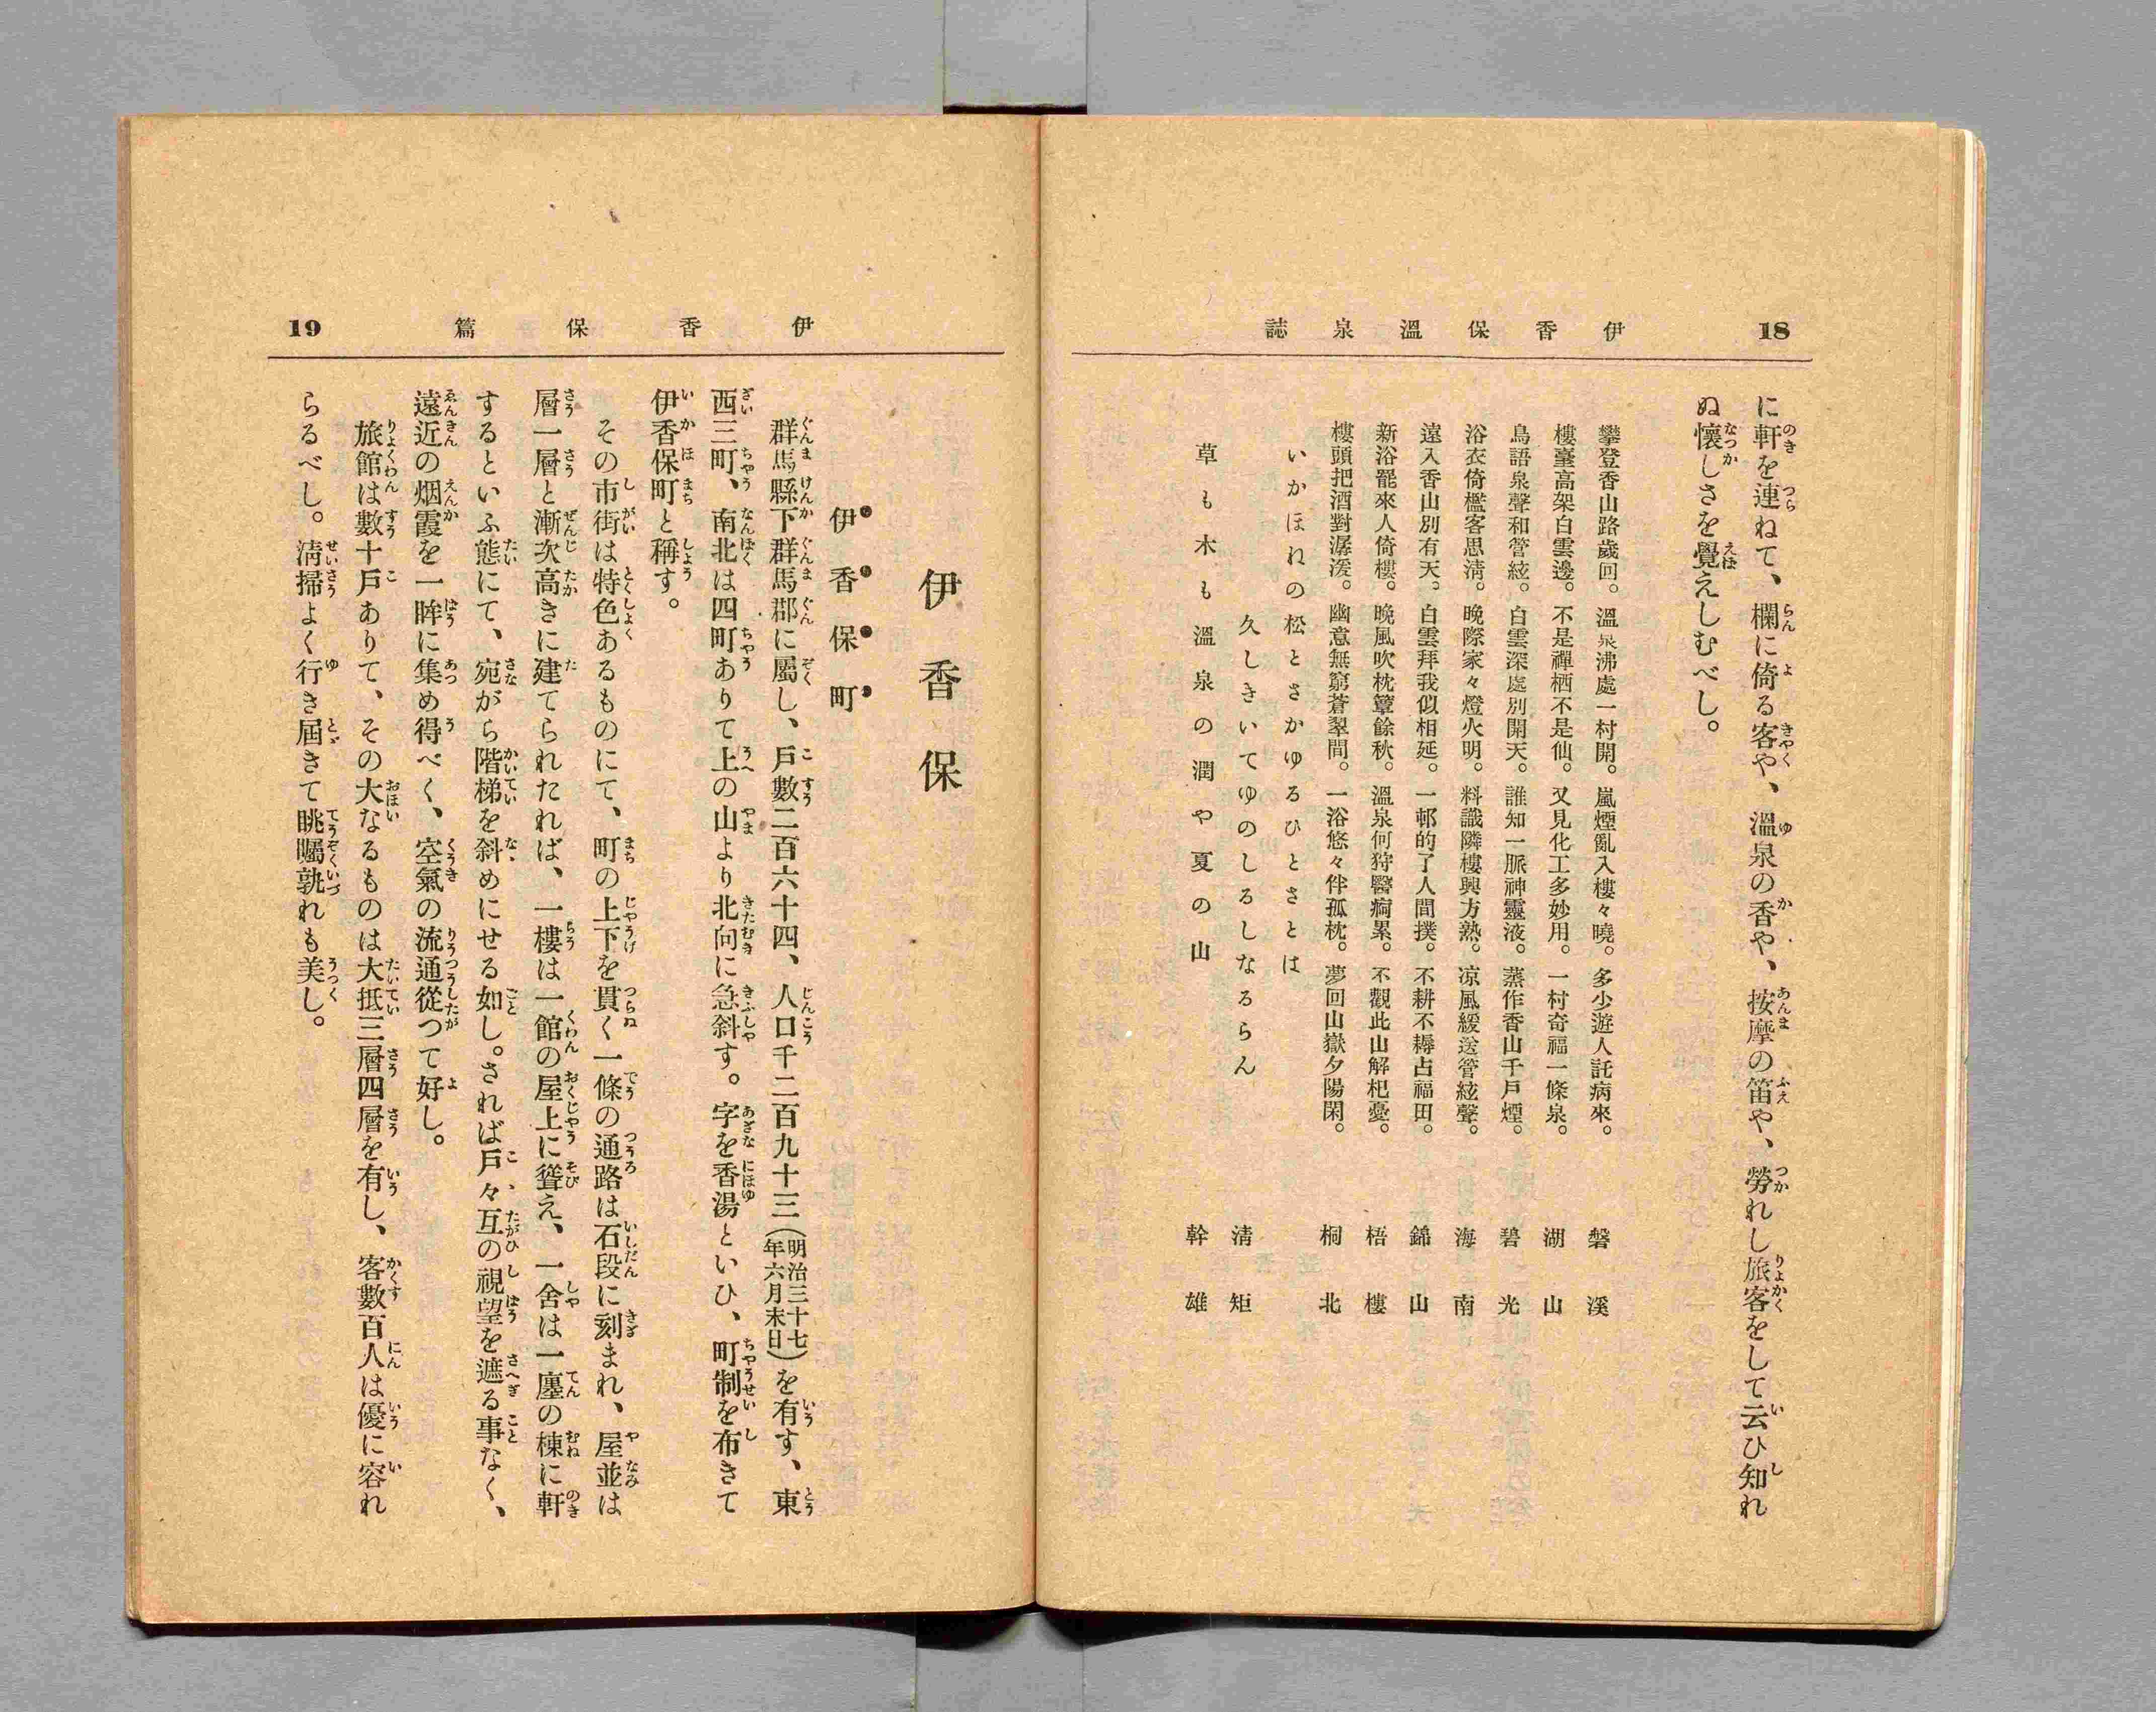 18
伊香保溫泉誌
に軒を連ねて、欄に倚る客や、溫泉の香や、按摩の笛や、勞れし旅客をして云ひ知れ
ぬ懷しさを覺えしむべし。
攀登香山路歲回。溫泉沸處一村開。嵐煙亂入樓々曉。多少遊人託病來。 磐溪
樓臺高架白雲邊。不是禪栖不是仙。又見化工多妙用。一村奇福一條泉。 湖山
鳥語泉聲和管絃。白雲深處別開天。誰知一脈神靈液。蒸作香山千戶煙。 碧光
浴衣倚檻客思淸。晚際家々燈火明。料識隣樓興方熟。凉風緩送管絃聲。 海南
遠入香山別有天。白雲拜我似相延。一邨的了人間撲。不耕不耨占福田。 錦山
新浴罷來人倚樓。晚風吹枕簟餘秋。溫泉何狩醫痾累。不觀此山解杞憂。 梧樓
樓頭把酒對潺湲。幽意無窮蒼翠間。一浴悠々伴孤枕。夢回山嶽夕陽閑。 桐北
いかほねの松とさかゆるひとさとは
久しきいてゆのしるしなるらん 淸矩
草も木も溫泉の潤や夏の山 幹雄
伊香保篇
19
伊香保
伊香保町
群馬縣下群馬郡に屬し、戶數二百六十四、人口千二百九十三(明治三十七年六月末日)を有す、東
西三町、南北は四町ありて上の山より北向に急斜す。字を香湯といひ、町制を布きて
伊香保町と稱す。
その市街は特色あるものにて、町の上下を貫く一條の通路は石段に刻まれ、屋並は
層一層と漸次高きに建てられたれば、一樓は一館の屋上に聳え、一舍は一廛の棟に軒
するといふ態にて、宛がら階梯を斜めにせる如し。されば戶々互の視望を遮る事なく、
遠近の烟霞を一眸に集め得べく、空氣の流通從つて好し。
旅館は數十戶ありて、その大なるものは大抵三層四層を有し、客數百人は優に容れ
らるべし。淸掃よく行き屆きて眺矚孰れも美し。